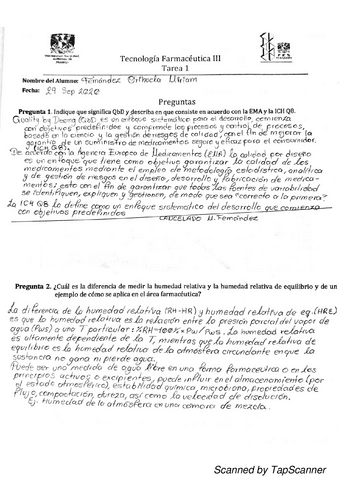 Tecnología Farmacéutica III
Tarea 1
Nombre del Alumno: Fernández Orihuela Miriam
Fecha: 29 Sep 2020
Preguntas
Pregunta 1. Indique que significa QbD y describa en que consiste de acuerdo con la EMA y la ICH Q8.
Quality by Desing (QbD) es un enfoque sistemático para el desarrollo, comienza
con objetivos predefinidos y comprende los procesos y control de procesos,
basado en la ciencia y la gestión de riesgos de calidad, con el fin de mejorar la
garantía de un suministro de medicamentos seguro y eficaz para el consumidor.
(ICH Q8).
De acuerdo con la Agencia Europea de Medicamentos (EMA) la calidad por diseño
es un enfoque que tiene como objetivo garantizar la calidad de los
medicamentos mediante el empleo de metodología estadística, analítica
y de gestión de riesgos en el diseño, desarrollo y fabricación de medica-
mentos; esto con el fin de garantizar que todas las fuentes de variabilidad
se identifiquen, expliquen y gestionen, de modo que sea "correcto a la primera"
La ICH Q8 lo define como un enfoque sistemático del desarrollo que comienza
con objetivos predefinidos CANCELADO M. Fernández
Pregunta 2. ¿Cuál es la diferencia de medir la humedad relativa y la humedad relativa de equilibrio y de un
ejemplo de cómo se aplica en el área farmacéutica?
La diferencia de la humedad relativa (RH-HR) y humedad relativa de eq. (HRE)
es que la humedad relativa es la relación entre la presión parcial del vapor de
agua (Pws) a una T particular: %RH=100% x Pw/Pws. La humedad relativa
es altamente dependiente de la T, mientras que la humedad relativa de
equilibrio es la humedad relativa de la atmósfera circundante en que la
sustancia no gana ni pierde agua.
Puede ser una medida de agua libre en una forma farmacéutica o en los
principios activos o excipientes, puede influir en el almacenamiento (por
el estado atmosférico), estabilidad química, microbiana, propiedades de
flujo, compactación, dureza, así como la velocidad de disolución.
Ej. Humedad de la atmósfera en una cámara de mezcla.
Scanned by TapScanner